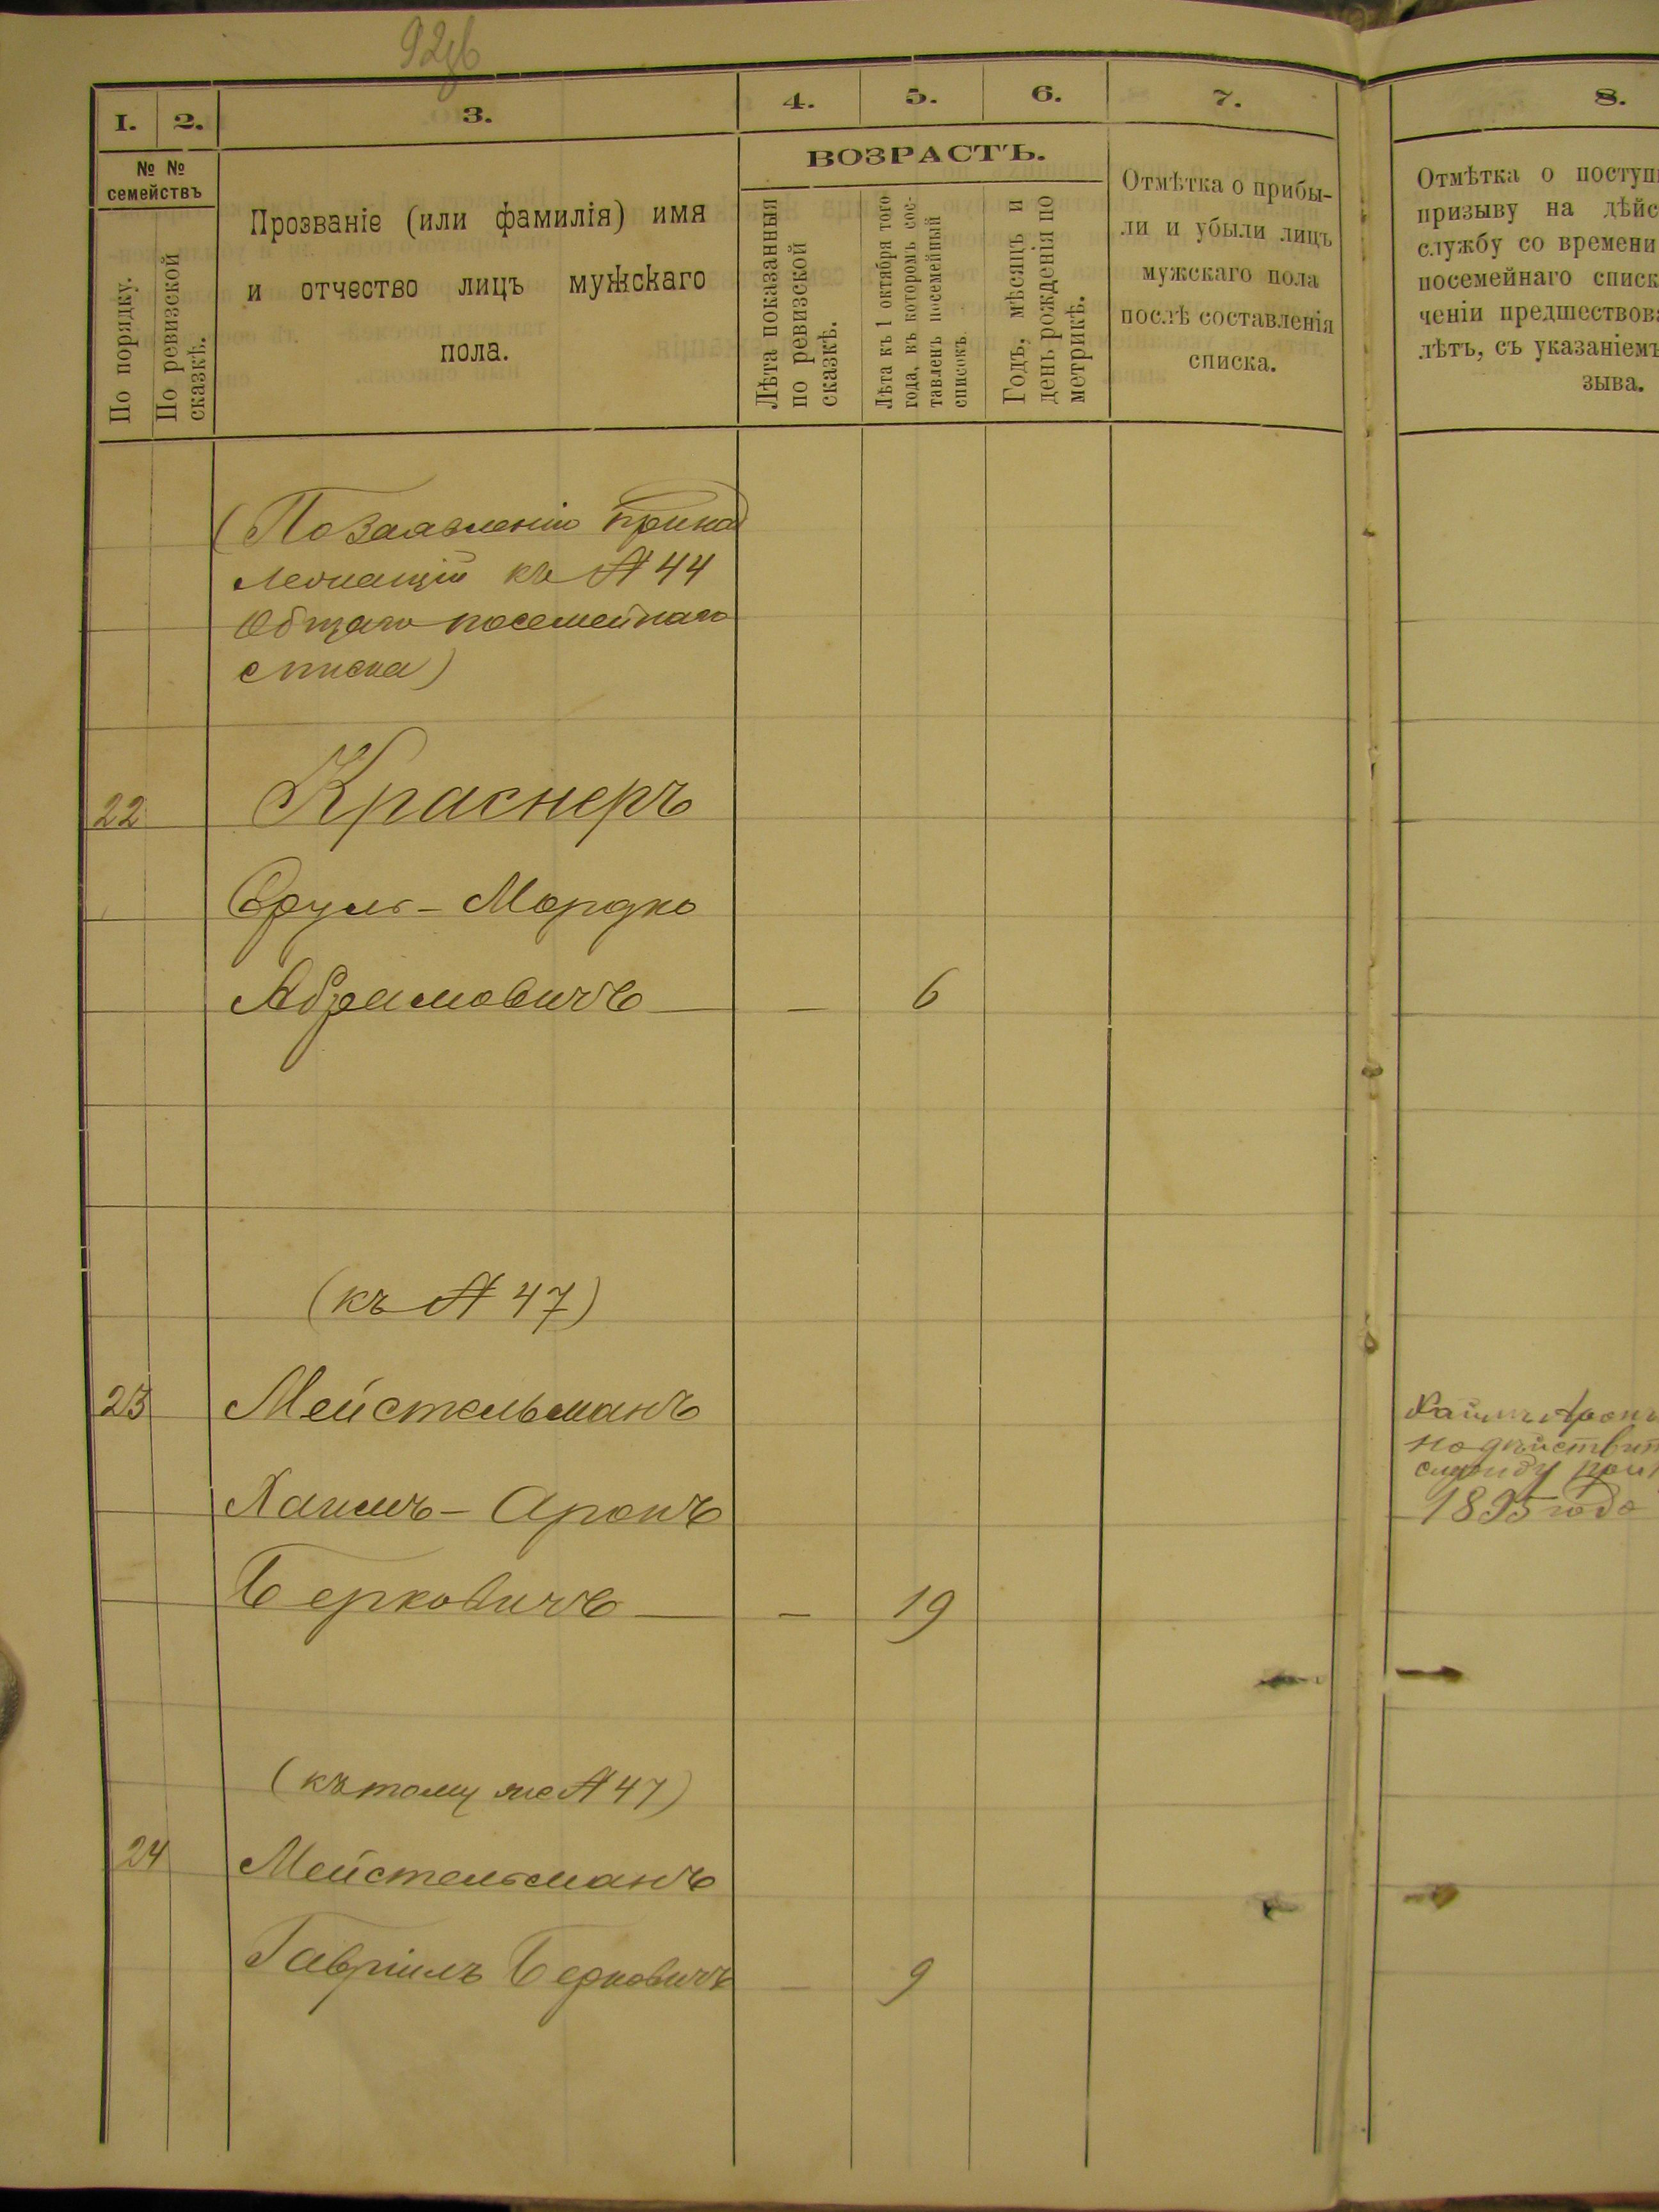 92об
1. 2. 3. 4. 5. 6. 7.
№ №
семействъ
По порядку.
По ревизской
сказкѣ.
Прозваніе (или фамилія) имя
и отчество лицъ мужскаго
пола.
ВОЗРАСТЪ.
Лѣта показанныя
по ревизской
сказкѣ.
Лѣта къ 1 октября того
года, въ которомъ сос-
тавленъ посемейный
списокъ.
Годъ, мѣсяцъ и
день рожденія по
метрикѣ.
Отмѣтка о прибы-
ли и убыли лицъ
мужскаго пола
послѣ составленія
списка.
(По заявленію принад
лежащій къ № 44
Общаго посемейнаго
списка)
22 Краснеръ
Сруль - Мордко
Абрамовичъ — — 6
(къ № 47)
23 Мейстельманъ
Хаимъ - Аронъ
Берковичъ — — 19
(къ тому же № 47)
24 Мейстельманъ
Гавріилъ Берковичъ — 9
8.
Отмѣтка о поступ
призыву на дѣйс
службу со времени
посемейнаго списк
ченіи предшествова
лѣтъ, съ указаніемъ
зыва.
Хаимъ Аронъ
на дѣйствит
службу
1895 года